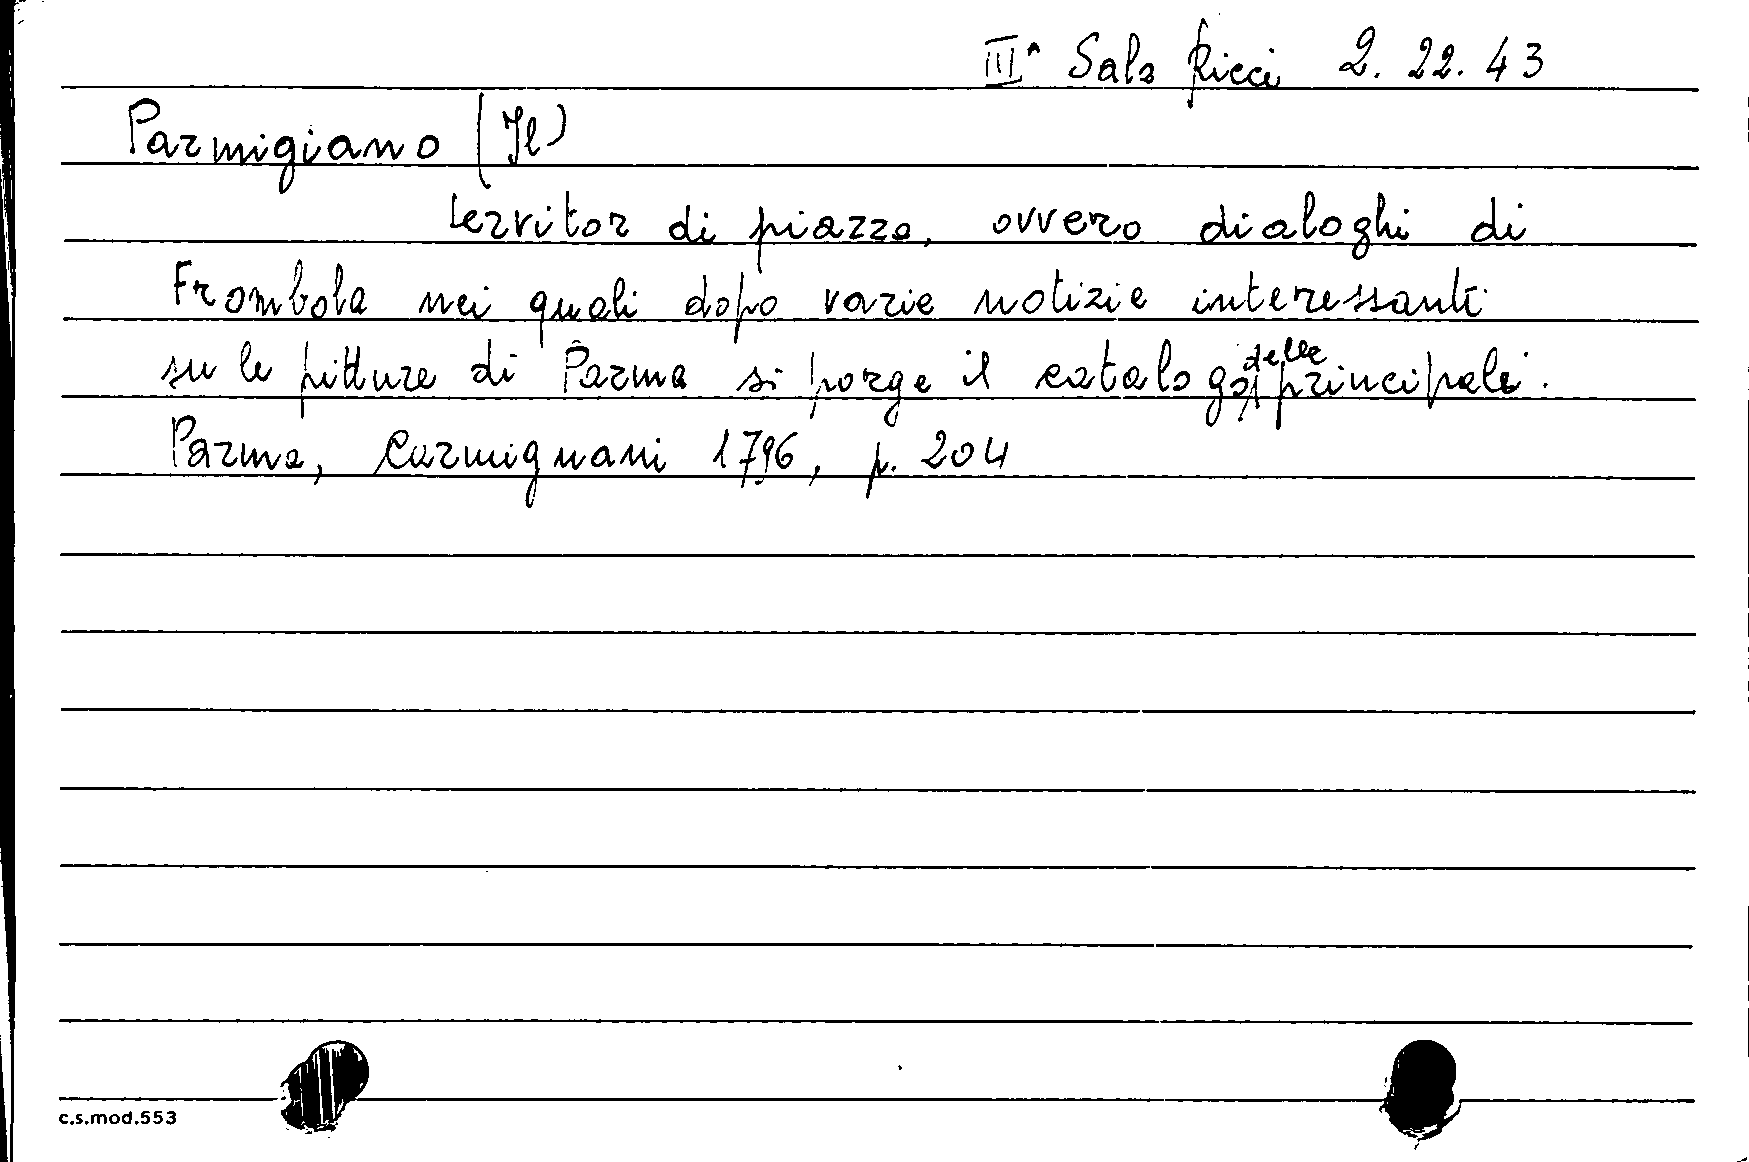 IIIª Sala Ricci 2. 22. 43
Parmigiano (Il)
servitor di piazza, ovvero dialoghi di
Frombola nei quali dopo varie notizie interessanti
su le pitture di Parma si porge il catalogo delle principali.
Parma, Carmignani 1796, p. 204
c.s.mod.553